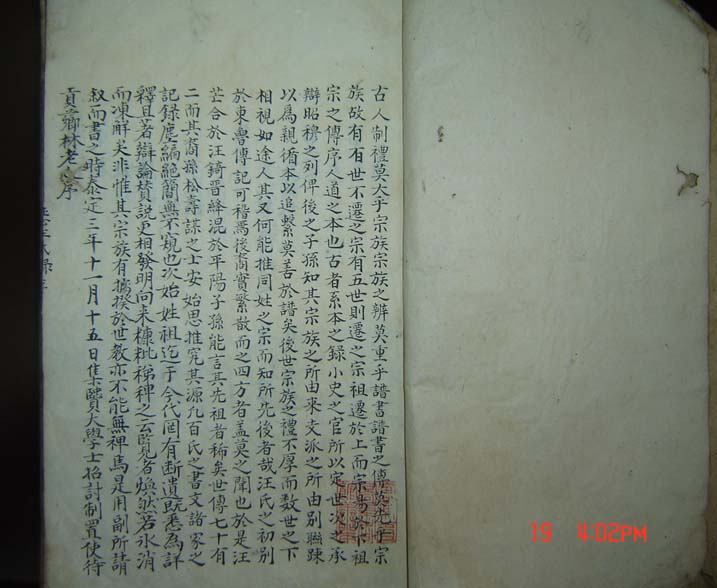 古人制禮莫大乎宗族宗族之辨莫重乎譜書譜書之傳莫先乎宗
族故有百世不遷之宗有五世則遷之宗祖遷於上而宗易於下祖
宗之傳序人道之本也古者系本之録小史之官所以定世次之承
辯昭穆之列俾後之子孫知其宗族之所由來支派之所由別聯踈
以爲親循本以追繫莫善於譜矣後世宗族之禮不厚而数世之下
相視如途人其又何能推同姓之宗而知所先後者哉汪氏之初別
於東魯傳記可稽焉後裔實繁散而之四方者盖莫之聞也於是汪
芒合於汪錡晋絳混於平陽子孫能言其先祖者稀矣世傳七十有
二而其裔孫松壽謀之士安始思推究其源凢百氏之書文諸家之
記録塵編絶簡無不窺也次始姓祖迄于今代罔有断遺旣悉為詳
釋且著辯論賛説更相發明向来糠粃稊稗之云覧者煥然若氷消
而凍觧矣非惟其宗族有攄揆於世教亦不能無裨焉是用副所請
叙而書之時泰定三年十一月十五日集賢大學士招討制置使待
貢章卿林老序
19 4:02PM